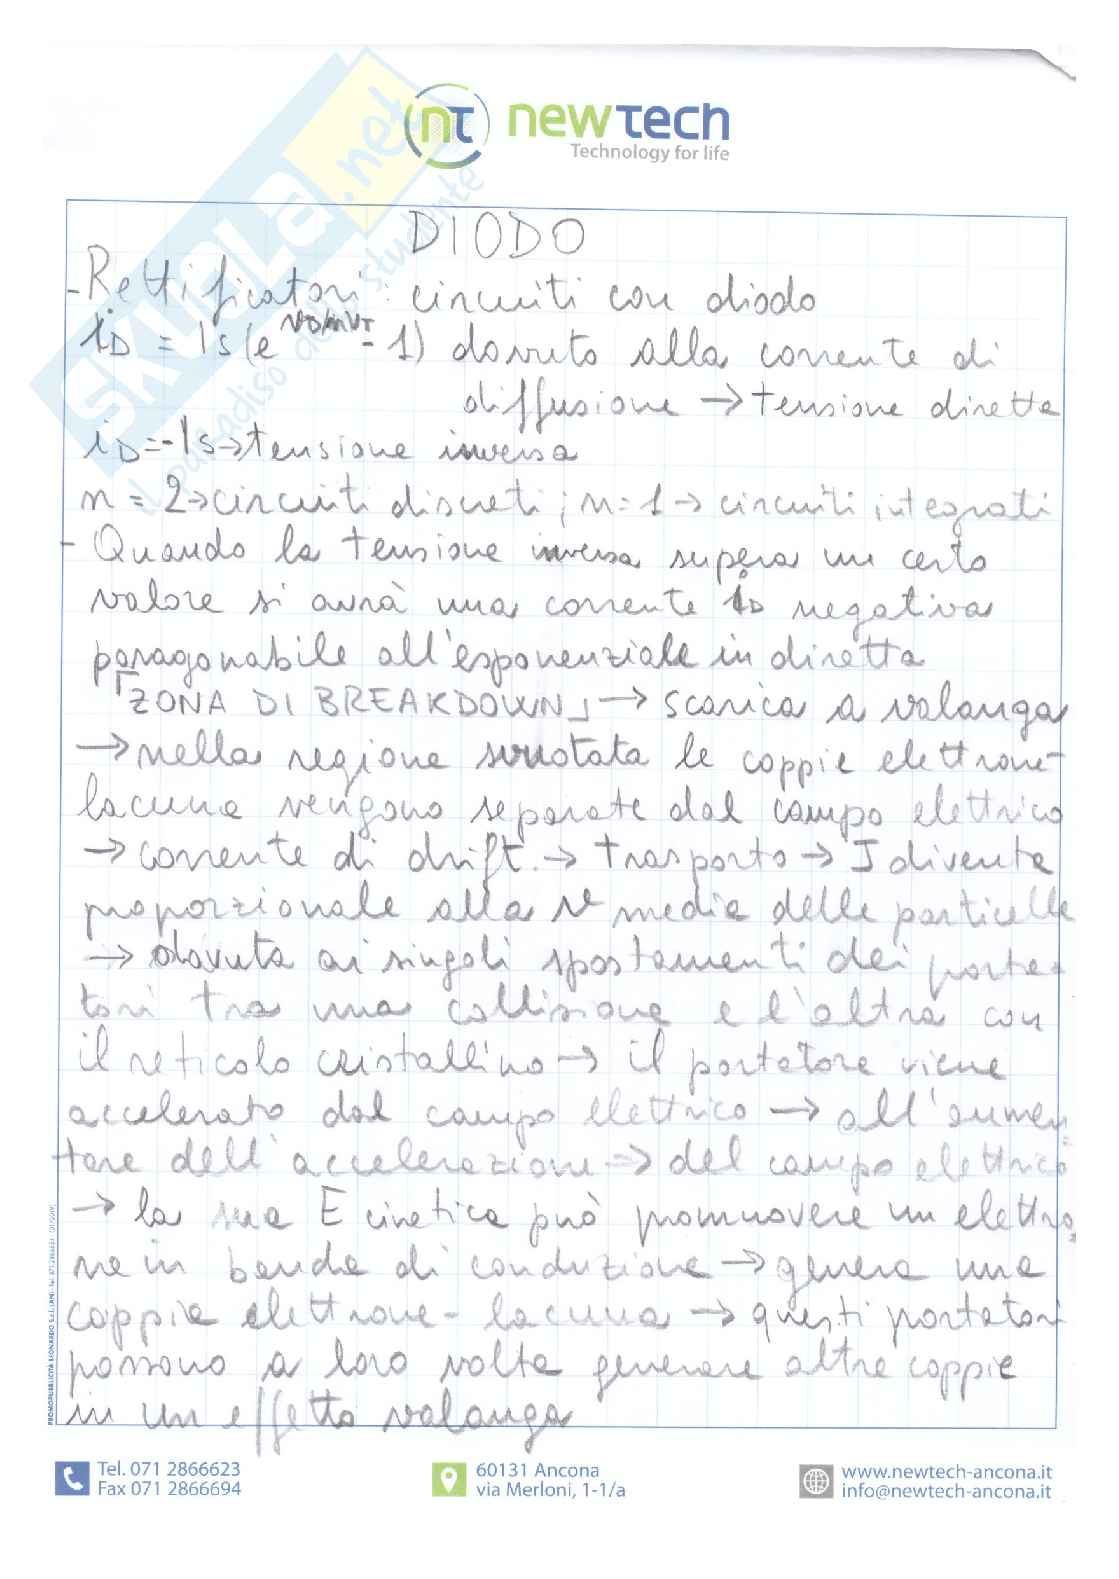 newtech
Technology for life
SKUOLA.net
il paradiso dello studente
DIODO
- Rettificatori: circuiti con diodo
iD = Is(e^VD/nVT - 1) dovuto alla corrente di
diffusione → tensione diretta
iD=-Is→tensione inversa
n = 2→circuiti discreti; n=1→ circuiti integrati
- Quando la tensione inversa supera un certo
valore si avrà una corrente iD negativa
paragonabile all'esponenziale in diretta
「ZONA DI BREAKDOWN」→ scarica a valanga
→ nella regione svuotata le coppie elettrone-
lacuna vengono separate dal campo elettrico
→ corrente di drift → trasporto → I diventa
proporzionale alla v media delle particelle
→ dovuta ai singoli spostamenti dei porta-
tori tra una collisione e l'altra con
il reticolo cristallino → il portatore viene
accelerato dal campo elettrico → all'aumen-
tare dell'accelerazione → del campo elettrico
→ la sua E cinetica può promuovere un elettro-
ne in banda di conduzione → genera una
coppia elettrone-lacuna → questi portatori
possono a loro volta generare altre coppie
in un effetto valanga
Tel. 071 2866623
Fax 071 2866694
60131 Ancona
via Merloni, 1-1/a
www.newtech-ancona.it
info@newtech-ancona.it